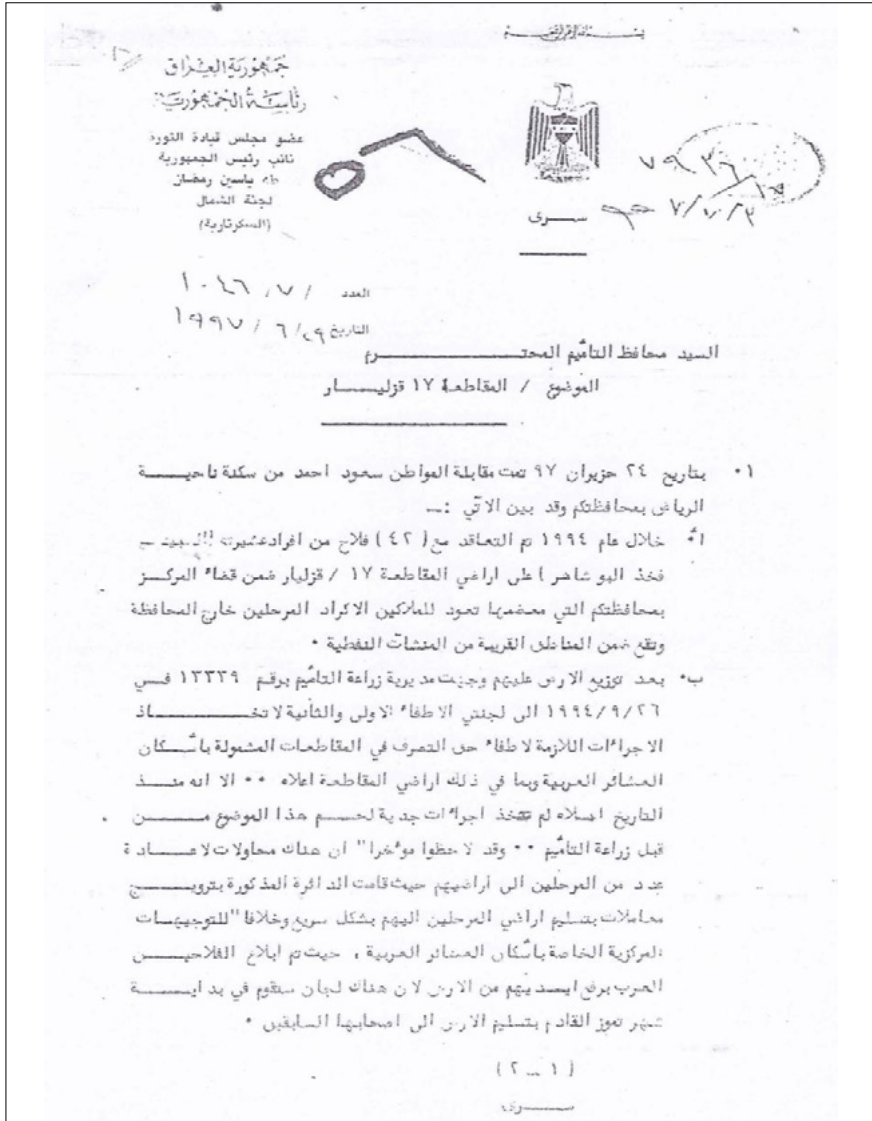 بسم الله الرحمن الرحيم
جمهورية العراق
رئاسة الجمهورية
عضو مجلس قيادة الثورة
نائب رئيس الجمهورية
طه ياسين رمضان
لجنة الشمال
(السكرتارية)
سرى
٧٩٣٦
٧/٧/٢
العدد / ٧ / ١٠٤٦
التاريخ ٢٩ / ٦ / ١٩٩٧
السيد محافظ التأميم المحتــــرم
الموضوع / المقاطعة ١٧ قزليــــار
١٠ بتاريخ ٢٤ حزيران ٩٧ تمت مقابلة المواطن سعود احمد من سكنة ناحيــــة
الرياض بمحافظتكم وقد بين الاتي :ــ
أ٠ خلال عام ١٩٩٤ تم التعاقد مع (٤٢) فلاح من افراد عشيرته
فخذ البو شاهر) على اراضي المقاطعة ١٧ / قزليار ضمن قضاء المركــز
بمحافظتكم التي معضمها تعود للملاكين الاكراد المرحلين خارج المحافظة
وتقع ضمن المناطق القريبة من المنشآت النفطية ٠
ب٠ بعد توزيع الارض عليهم وجهت مديرية زراعة التأميم برقم ١٣٣٣٩ فــي
١٩٩٤/٩/٢٦ الى لجنتي الاطفاء الاولى والثانية لاتخــــاذ
الاجراءات اللازمة لاطفاء حق التصرف في المقاطعات المشمولة باسكان
العشائر العربية وبما في ذلك اراضي المقاطعة اعلاه ٠٠ الا انه منــــذ
التاريخ اعلاه لم تتخذ اجراءات جدية لحسم هذا الموضوع مــــن
قبل زراعة التأميم ٠٠ وقد لاحظوا مؤخرا" ان هناك محاولات لاعــــادة
عدد من المرحلين الى اراضيهم حيث قامت الدائرة المذكورة بترويــــج
معاملات بتسليم اراضي المرحلين اليهم بشكل سريع وخلافا" للتوجيهــات
المركزية الخاصة باسكان العشائر العربية ، حيث تم ابلاغ الفلاحيــــن
العرب برفع ايــديهم من الارض لان هناك لجان ستقوم في بدايــــة
شهر تموز القادم بتسليم الارض الى اصحابها السابقين ٠
(١ ــ ٢)
ســــرى